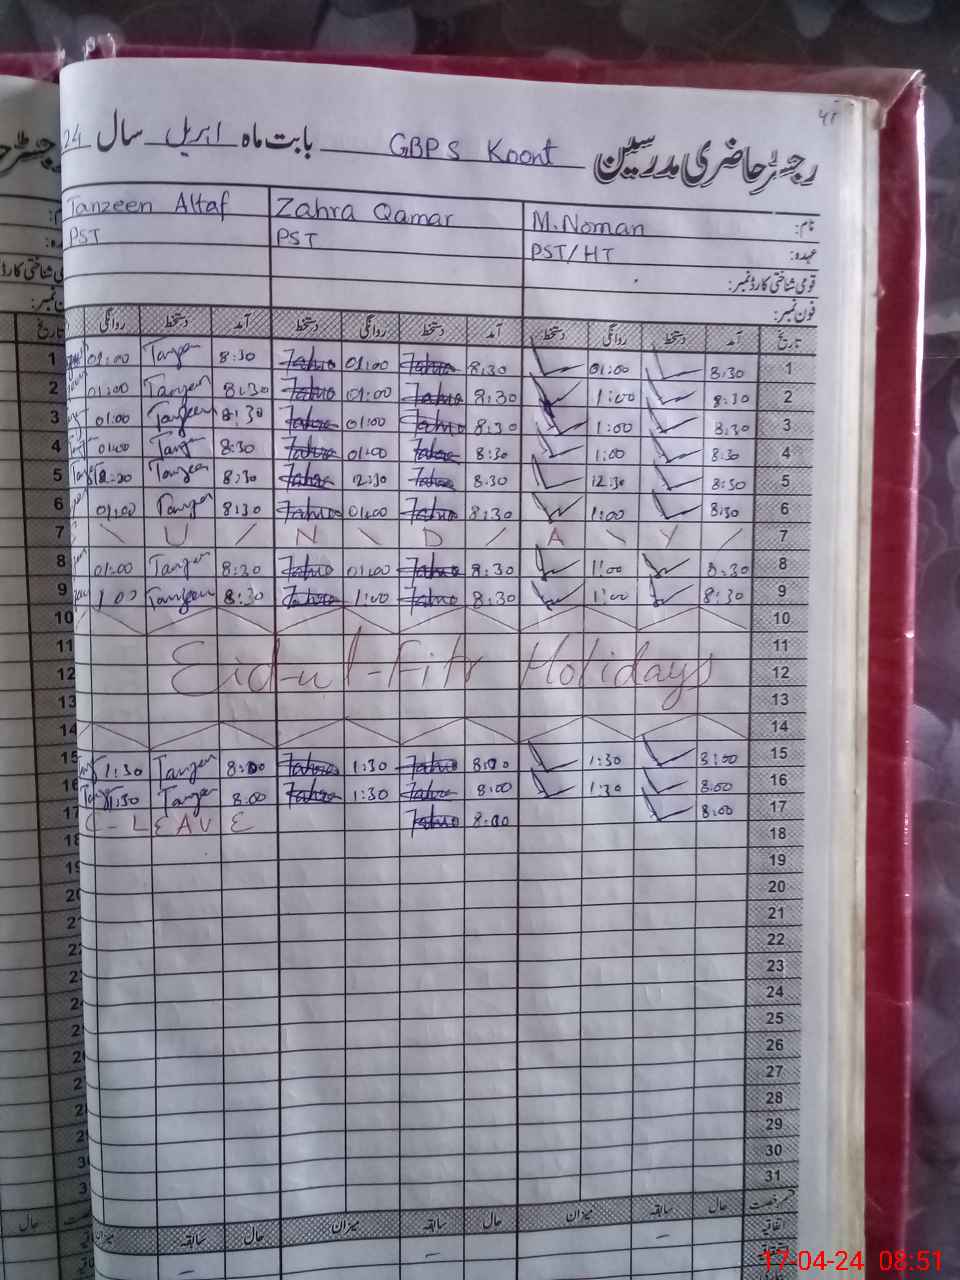 رجسٹر حاضری مدرسین GBPS Koont بابت ماہ اپریل سال 24
نام: M.Noman Zahra Qamar Tanzeen Altaf
عہدہ: PST/HT PST PST
قومی شناختی کارڈ نمبر:
فون نمبر:
تاریخ آمد دستخط روانگی دستخط آمد دستخط روانگی دستخط آمد دستخط روانگی تاریخ
1 8:30 01:00 8:30 Zahra 01:00 Zahra 8:30 Tanzeen 01:00 1
2 8:30 1:00 8:30 Zahra 01:00 Zahra 8:30 Tanzeen 01:00 2
3 8:30 1:00 8:30 Zahra 01:00 Zahra 8:30 Tanzeen 01:00 3
4 8:30 1:00 8:30 Zahra 01:00 Zahra 8:30 Tanzeen 01:00 4
5 8:30 12:30 8:30 Zahra 12:30 Zahra 8:30 Tanzeen 5
6 8:30 1:00 8:30 Zahra 01:00 Zahra 8:30 Tanzeen 01:00 6
7 U N D A Y 7
8 8:30 1:00 8:30 Zahra 01:00 Zahra 8:30 Tanzeen 01:00 8
9 8:30 1:00 8:30 Zahra 1:00 Zahra 8:30 Tanzeen 1:00 9
10 10
11 11
12 Eid-ul-Fitr Holidays 12
13 13
14 14
15 8:00 1:30 8:00 Zahra 1:30 Zahra 8:00 Tanzeen 1:30 15
16 8:00 1:30 8:00 Zahra 1:30 Zahra 8:00 Tanzeen 1:30 16
17 8:00 8:00 Zahra C-LEAVE 17
18 18
19 19
20 20
21
22
23
24
25
26
27
28
29
30
31
رخصت حال سابقہ میزان حال سابقہ میزان حال سابقہ میزان
اتفاقیہ
17-04-24 08:51